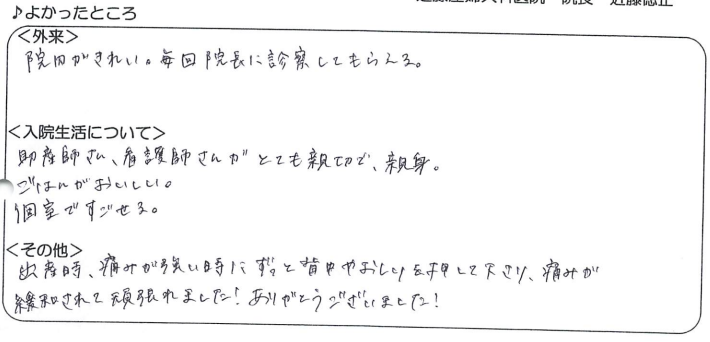 ♪よかったところ
＜外来＞
院内がきれい。毎回院長に診察してもらえる。
＜入院生活について＞
助産師さん、看護師さんがとても親切で、親身。
ごはんがおいしい。
個室ですごせる。
＜その他＞
出産時、痛みが強い時にずっと背中やおしりを押して下さり、痛みが
緩和されて頑張れました！ありがとうございました！